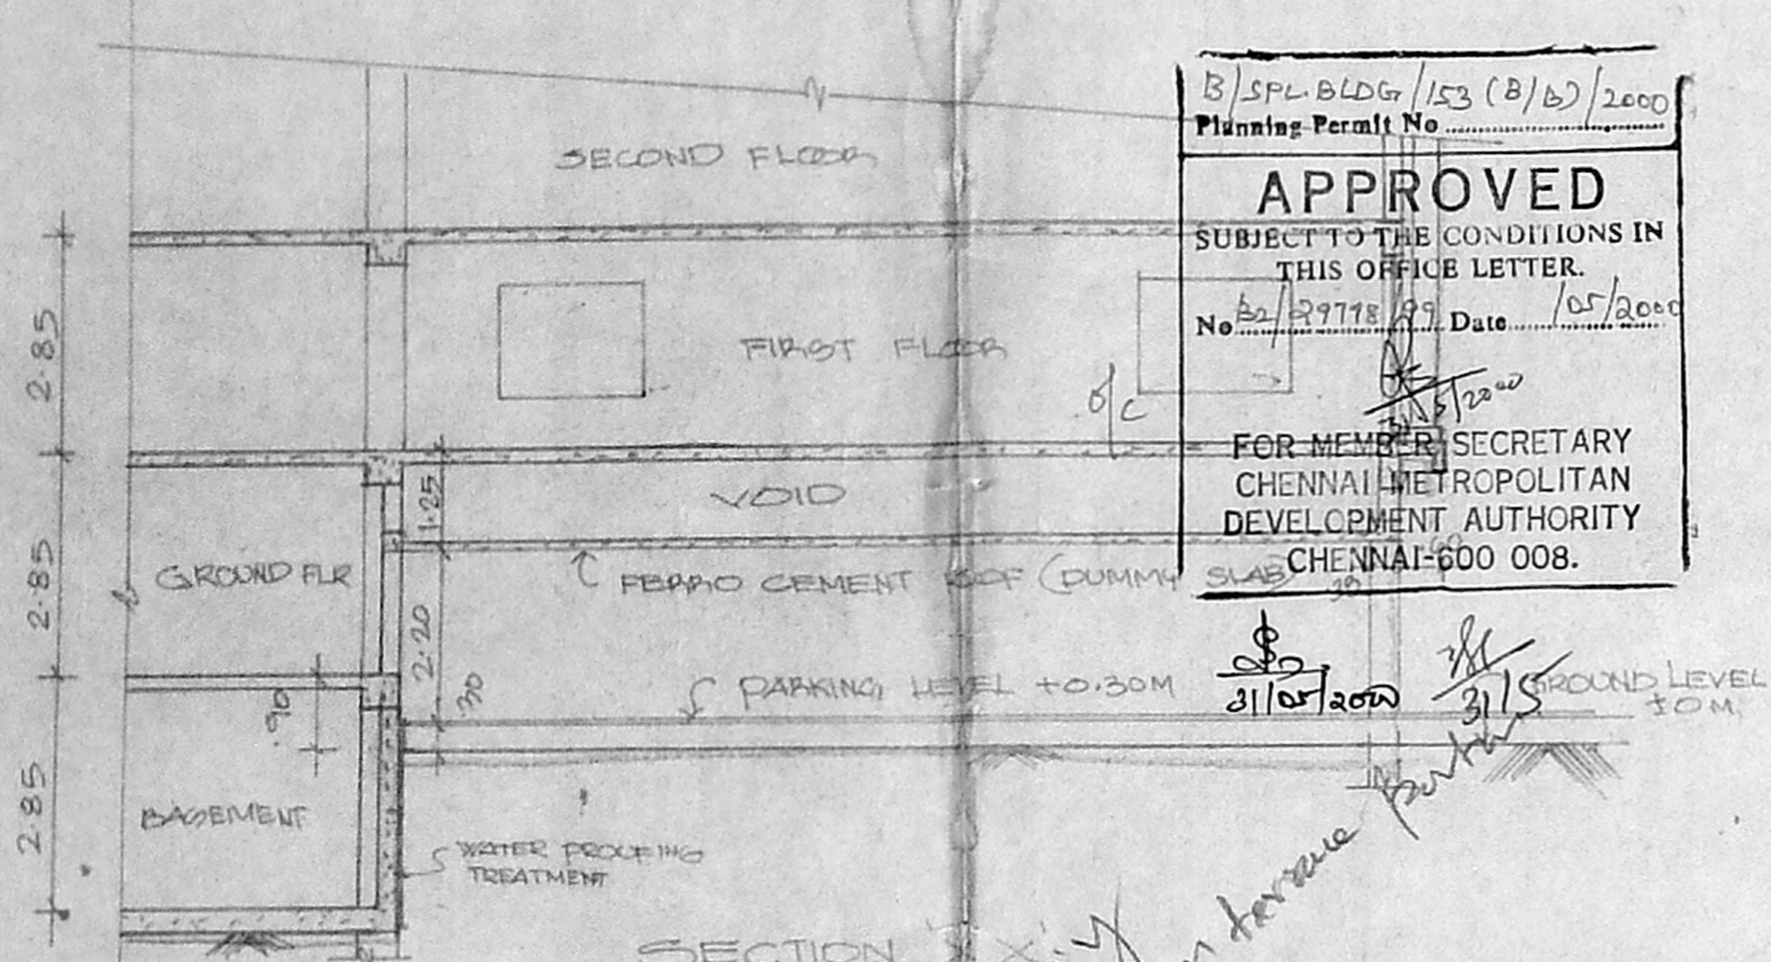 B/SPL.BLDG/153 (B/D)/2000
Planning Permit No
APPROVED
SUBJECT TO THE CONDITIONS IN
THIS OFFICE LETTER.
No B2/29778/99 Date /05/2000
31/5/2000
FOR MEMBER SECRETARY
CHENNAI METROPOLITAN
DEVELOPMENT AUTHORITY
CHENNAI-600 008.
31/05/2000
31/5
SECOND FLOOR
2.85
FIRST FLOOR
O/C
1.25
VOID
2.85
GROUND FLR
FERRO CEMENT ROOF (DUMMY SLAB)
2.20
.30
PARKING LEVEL +0.30M
GROUND LEVEL
±0 M
.90
2.85
BASEMENT
WATER PROOFING
TREATMENT
terrace portion
SECTION